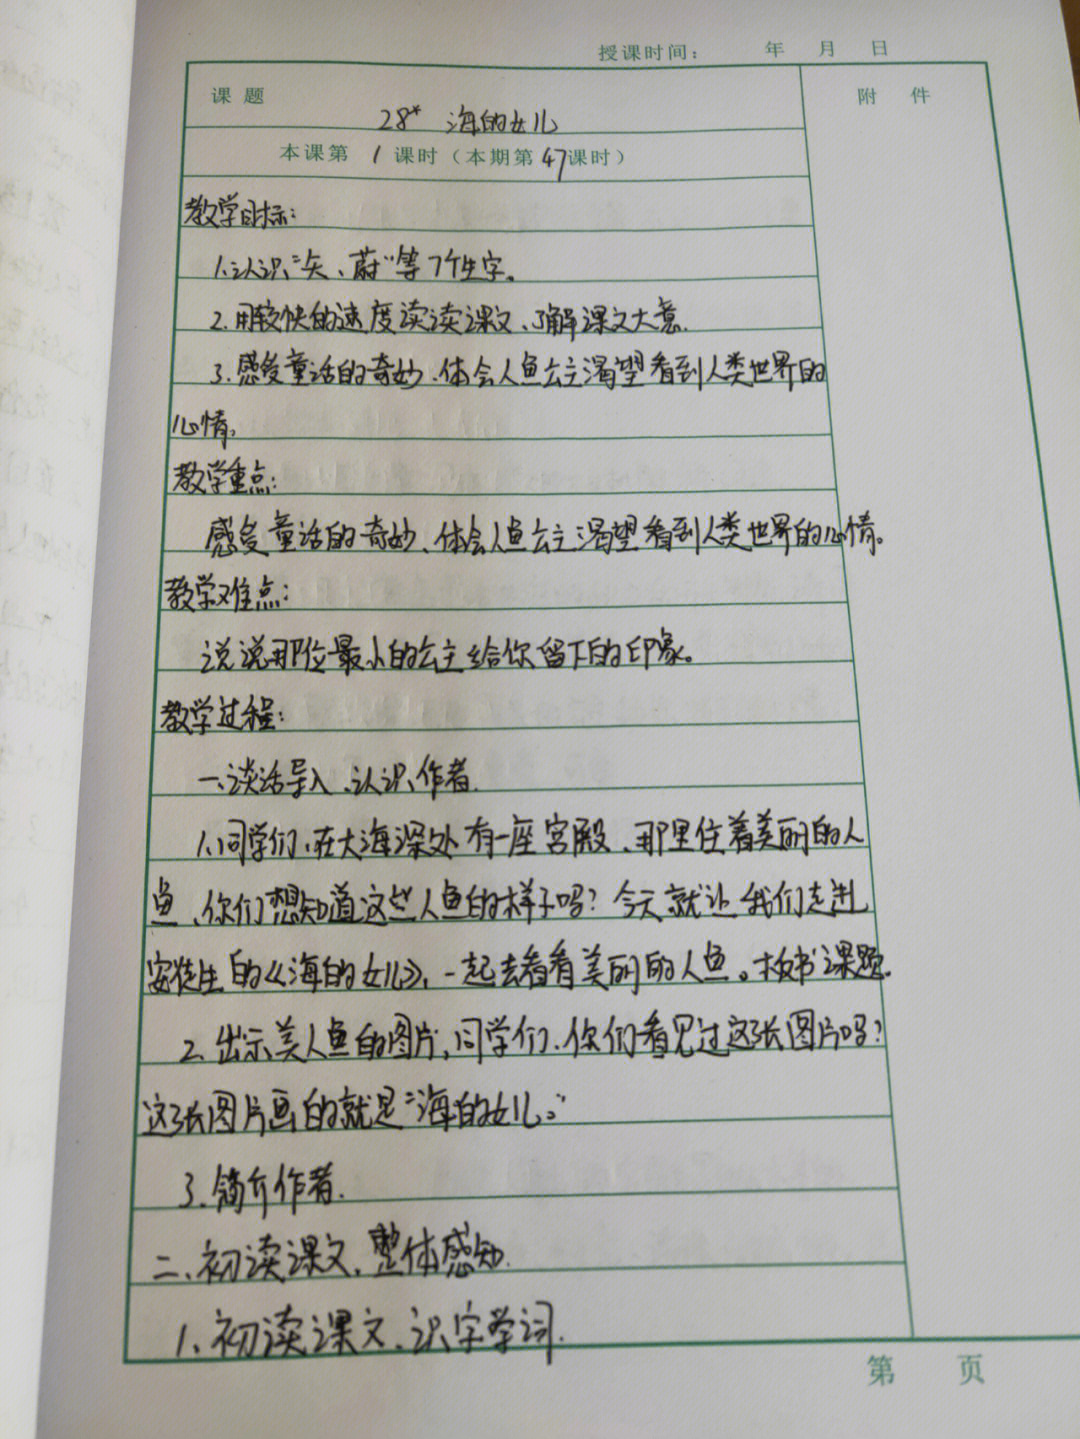 授课时间： 年 月 日
课题
附 件
28* 海的女儿
本课第 1 课时（本期第47课时）
教学目标：
1.认识“矢、蔚”等7个生字。
2.用较快的速度读读课文、了解课文大意.
3.感受童话的奇妙、体会人鱼公主渴望看到人类世界的
心情。
教学重点：
感受童话的奇妙、体会人鱼公主渴望看到人类世界的心情。
教学难点：
说说那位最小的公主给你留下的印象。
教学过程：
一、谈话导入、认识作者.
1、同学们、在大海深处有一座宫殿、那里住着美丽的人
鱼、你们想知道这些人鱼的样子吗？今天就让我们走进
安徒生的《海的女儿》，一起去看看美丽的人鱼。板书课题.
2. 出示美人鱼的图片，同学们、你们看见过这张图片吗？
这张图片画的就是“海的女儿。”
3. 简介作者.
二、初读课文、整体感知.
1、初读课文、识字学词.
第 页